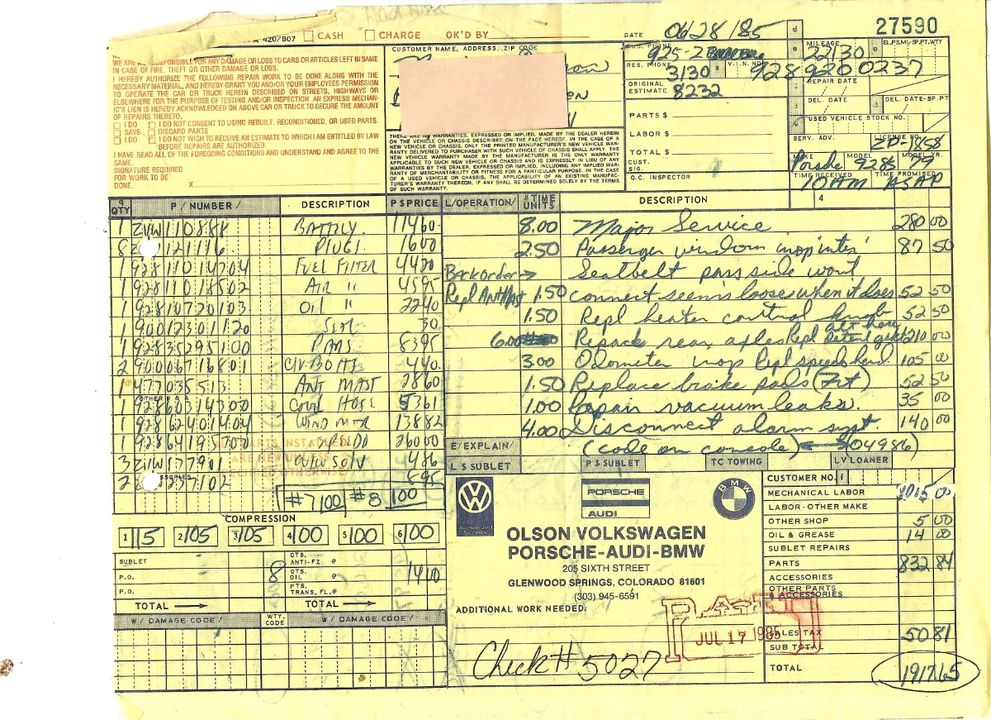 420/807 CASH CHARGE OK'D BY
DATE 06/28/85
27590
CUSTOMER NAME, ADDRESS, ZIP CODE
BUS. PHONE 925-2
MILEAGE 22130
RES. PHONE 3130
V.I.N. NO. 9289200237
ORIGINAL ESTIMATE 8232
REPAIR DATE
DEL. DATE
DEL. DATE-SP.PT
PARTS $
USED VEHICLE STOCK NO.
LABOR $
SERV. ADV.
LICENSE NO. ZP-1858
TOTAL $
MAKE Porsche MODEL 928S
CUST. SIG.
TIME RECEIVED 10AM TIME PROMISED ASAP
Q.C. INSPECTOR
FOR ANY DAMAGE OR LOSS TO CARS OR ARTICLES LEFT IN SAME
IN CASE OF FIRE, THEFT OTHER DAMAGE OR LOSS.
I HEREBY AUTHORIZE THE FOLLOWING REPAIR WORK TO BE DONE ALONG WITH THE
NECESSARY MATERIAL, AND HEREBY GRANT YOU AND/OR YOUR EMPLOYEES PERMISSION
TO OPERATE THE CAR OR TRUCK HEREIN DESCRIBED ON STREETS, HIGHWAYS OR
ELSEWHERE FOR THE PURPOSE OF TESTING AND/OR INSPECTION. AN EXPRESS MECHAN-
IC'S LIEN IS HEREBY ACKNOWLEDGED ON ABOVE CAR OR TRUCK TO SECURE THE AMOUNT
OF REPAIRS THERETO.
I DO I DO NOT CONSENT TO USING REBUILT, RECONDITIONED, OR USED PARTS.
SAVE DISCARD PARTS
I DO I DO NOT WISH TO RECEIVE AN ESTIMATE TO WHICH I AM ENTITLED BY LAW
BEFORE REPAIRS ARE AUTHORIZED.
I HAVE READ ALL OF THE FOREGOING CONDITIONS AND UNDERSTAND AND AGREE TO THE
SIGNATURE REQUIRED
FOR WORK TO BE
DONE. X
THERE ARE NO WARRANTIES, EXPRESSED OR IMPLIED, MADE BY THE DEALER HEREIN
ON THE VEHICLE OR CHASSIS DESCRIBED ON THE FACE HEREOF, IN THE CASE OF A
NEW VEHICLE OR CHASSIS, ONLY THE PRINTED MANUFACTURER'S NEW VEHICLE WAR-
RANTY DELIVERED TO PURCHASER WITH SUCH VEHICLE OR CHASSIS SHALL APPLY. THE
NEW VEHICLE WARRANTY MADE BY THE MANUFACTURER IS THE ONLY WARRANTY
APPLICABLE TO SUCH NEW VEHICLE OR CHASSIS AND IS EXPRESSLY IN LIEU OF ANY
WARRANTIES BY THE DEALER, EXPRESSED OR IMPLIED, INCLUDING ANY IMPLIED WAR-
RANTY OF MERCHANTABILITY OR FITNESS FOR A PARTICULAR PURPOSE. IN THE CASE
OF A USED VEHICLE OR CHASSIS, THE APPLICABILITY OF AN EXISTING MANUFAC-
TURER'S WARRANTY THEREON, IF ANY, SHALL BE DETERMINED SOLELY BY THE TERMS
OF SUCH WARRANTY.
QTY P / NUMBER / DESCRIPTION P $ PRICE L/OPERATION/ TIME UNITS DESCRIPTION
1 ZVW110888 BATTERY 11460 8.00 Major Service 280 00
8 121116 PLUGS 1600 2.50 Passenger window inop 'inter' 87 50
1 92811014704 FUEL FILTER 4420 Backorder → Seatbelt pass side wont
1 92811018502 AIR " 4595 Repl Ant Mast 1.50 connect seems loose when it does 52 50
1 92810720103 OIL " 2240 1.50 Repl heater control knob 52 50
1 90012301120 SEAL 30 6.00 Repack rear axles Repl 210 00
1 92835295100 PADS 8395 3.00 Odometer inop Repl speedo head 105 00
2 90006716801 CV BOLTS 440 1.50 Replace brake pads (Frt) 52 50
1 477035513 ANT MAST 2860 1.00 Repair vacuum leaks. 35 00
1 92860314300 COOL HOSE 5361 4.00 Disconnect alarm syst 140 00
1 92862401404 WIND MTR 13882 (code on console) ← 04986)
1 92864195700 SPEEDO 26000
3 ZVW137901 W/W SOLV 486
2 227102 595
#7 100 #8 100
E/EXPLAIN/
L $ SUBLET P $ SUBLET TC TOWING LV LOANER
COMPRESSION
1 115 2 105 3 105 4 100 5 100 6 100
SUBLET
P.O.
P.O.
QTS. ANTI-FZ @
8 QTS. OIL @ 1400
PTS. TRANS. FL. @
TOTAL → TOTAL →
W / DAMAGE CODE / WTY. CODE W / DAMAGE CODE /
PORSCHE
AUDI
BMW
OLSON VOLKSWAGEN
PORSCHE-AUDI-BMW
205 SIXTH STREET
GLENWOOD SPRINGS, COLORADO 81601
(303) 945-6591
ADDITIONAL WORK NEEDED:
JUL 17 1985
Check# 5027
CUSTOMER NO.
MECHANICAL LABOR 1015 00
LABOR-OTHER MAKE
OTHER SHOP 5 00
OIL & GREASE 14 00
SUBLET REPAIRS
PARTS 832 84
ACCESSORIES
OTHER PARTS & ACCESSORIES
SALES TAX 50 81
SUB TOTAL
TOTAL 1917.65